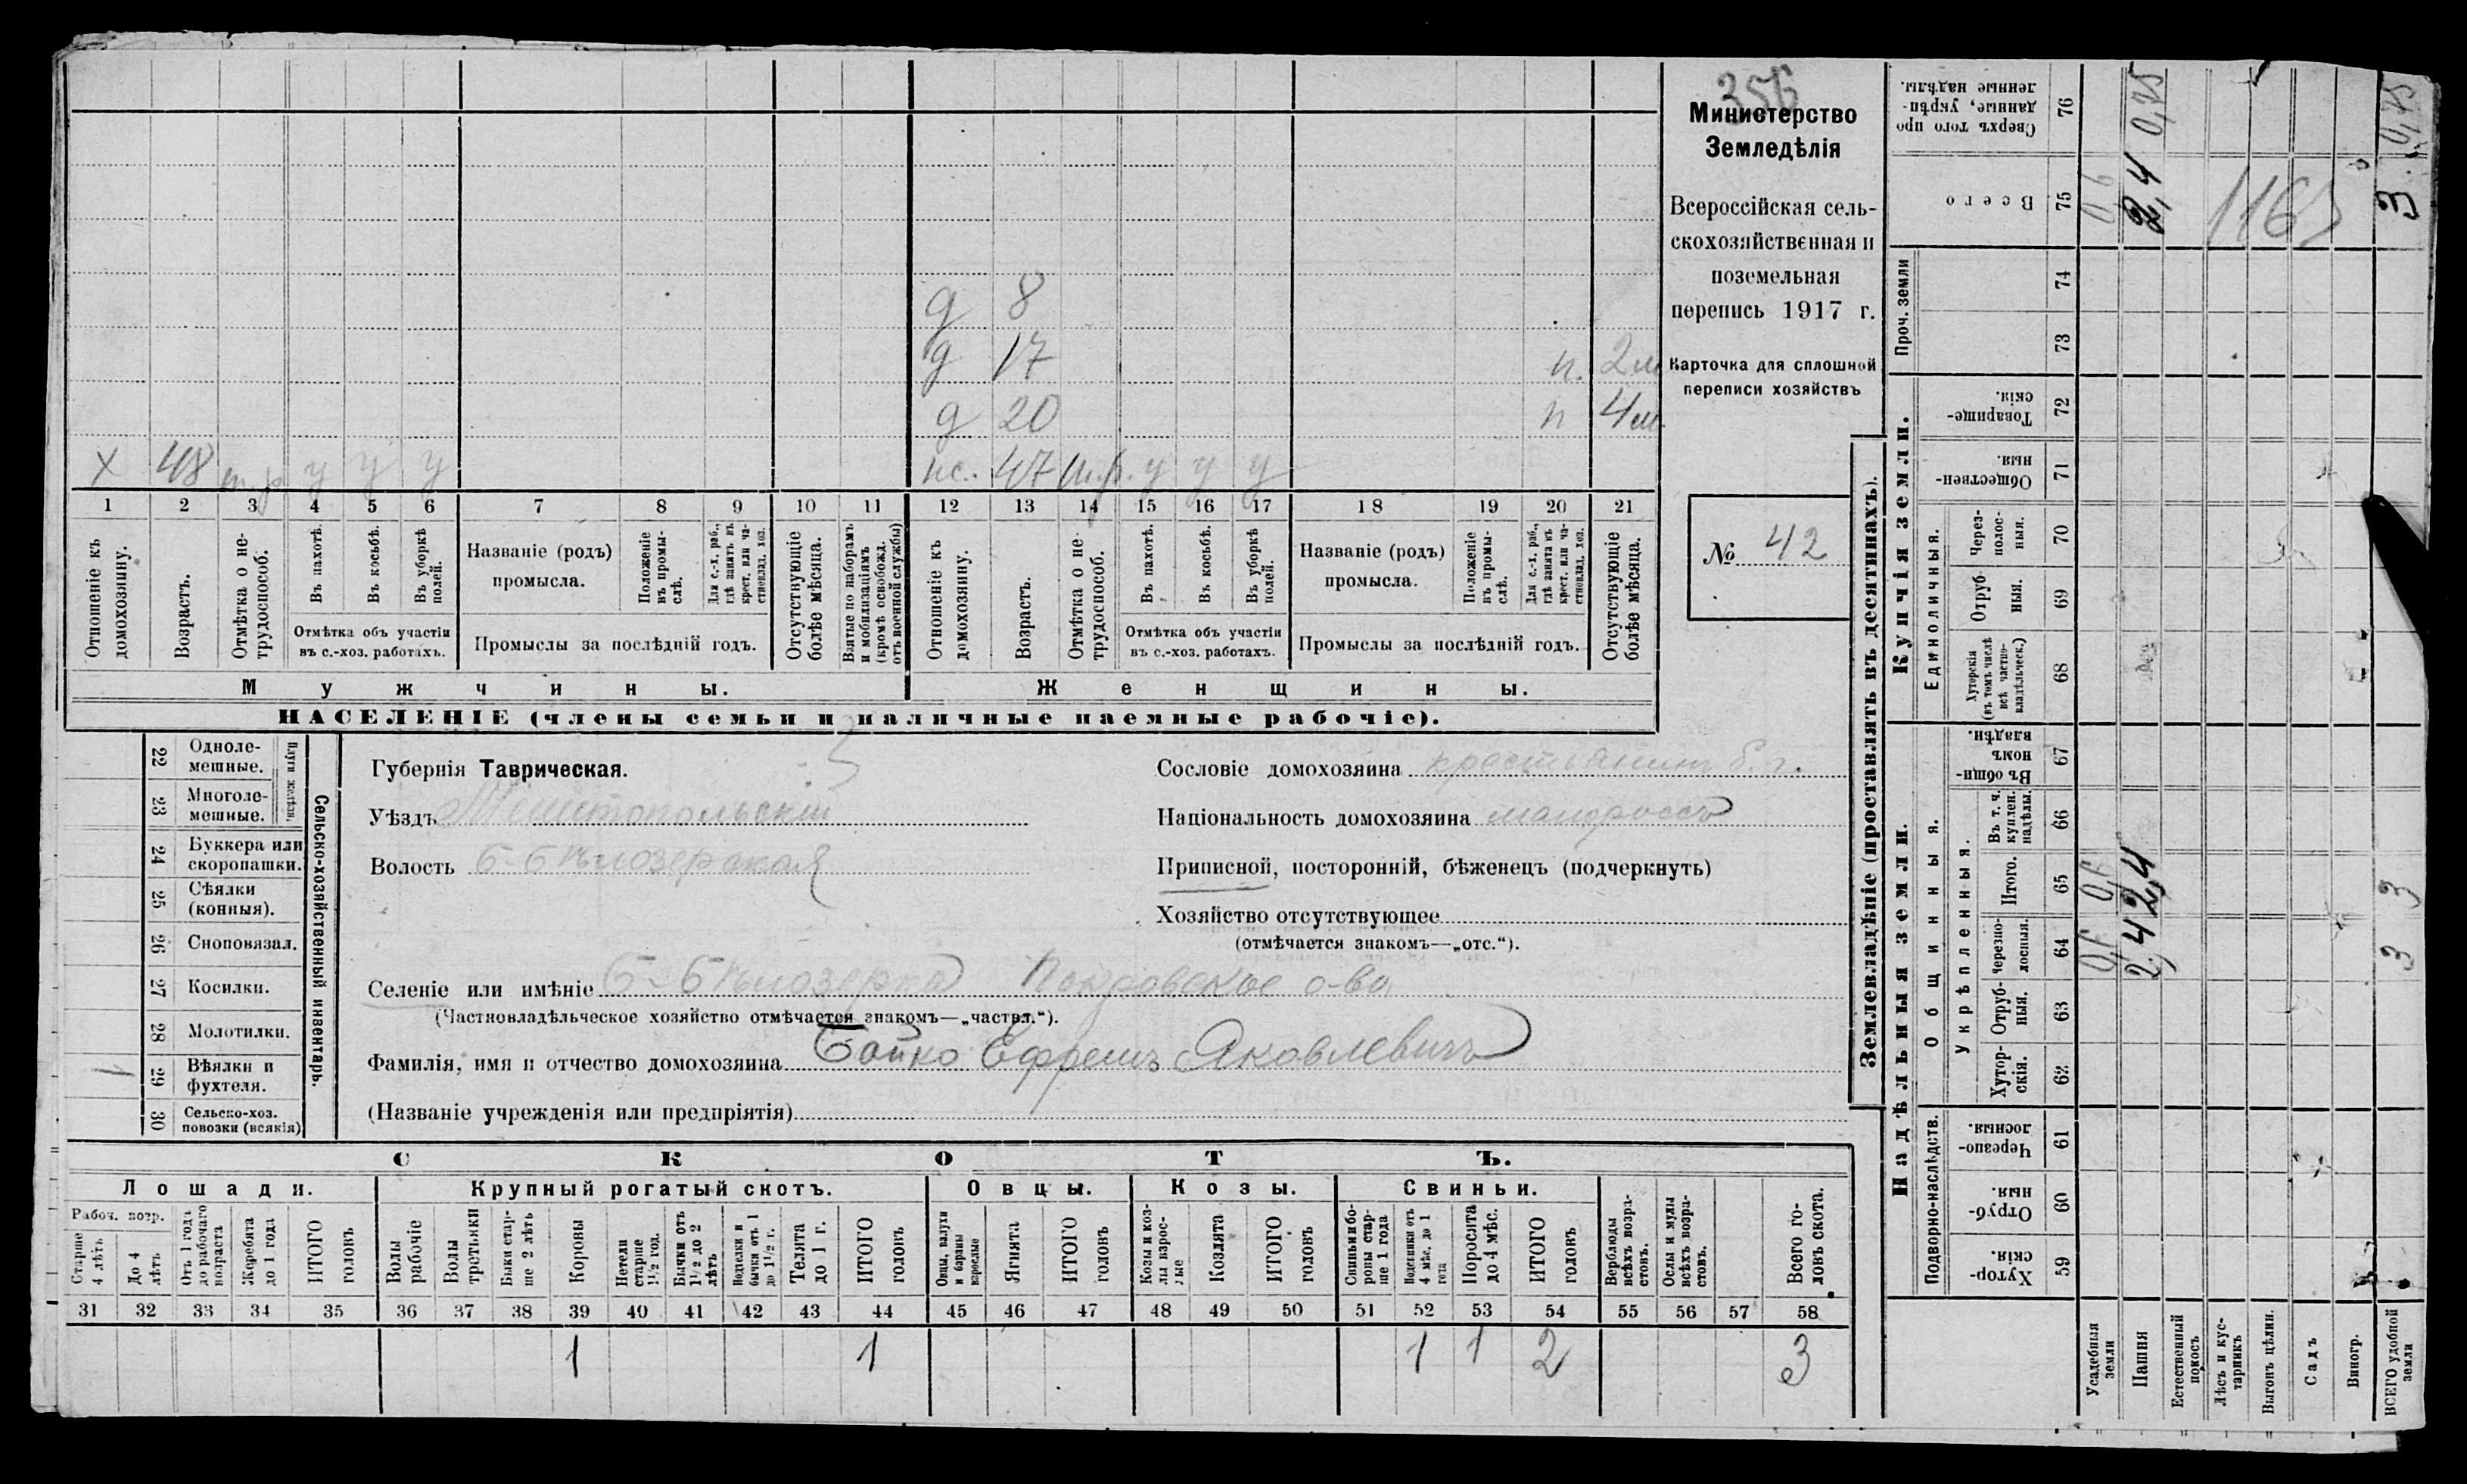 356
Министерство
Земледѣлія
Всероссійская сель-
скохозяйственная и
поземельная
перепись 1917 г.
Карточка для сплошной
переписи хозяйствъ
№ 42
д 8
д 17 п. 2 м
д 20 п 4 м.
х 48 т.р у у у
ж. 47 т.р. у у у
1 2 3 4 5 6 7 8 9 10 11 12 13 14 15 16 17 18 19 20 21
Отношеніе къ домохозяину.
Возрастъ.
Отмѣтка о не-трудоспособ.
Въ пахотѣ.
Въ косьбѣ.
Въ уборкѣ полей.
Отмѣтка объ участіи
въ с.-хоз. работахъ.
Названіе (родъ)
промысла.
Положеніе въ промы-слѣ.
Для с.-х. раб., гдѣ занятъ въ крест. или ча-стновлад. хоз.
Промыслы за послѣдній годъ.
Отсутствующіе болѣе мѣсяца.
Взятые по наборамъ и мобилизаціямъ (кромѣ освобожд. отъ военной службы)
Отношеніе къ домохозяину.
Возрастъ.
Отмѣтка о не-трудоспособ.
Въ пахотѣ.
Въ косьбѣ.
Въ уборкѣ полей.
Отмѣтка объ участіи
въ с.-хоз. работахъ.
Названіе (родъ)
промысла.
Положеніе въ промы-слѣ.
Для с.-х. раб., гдѣ занята въ крест. или ча-стновлад. хоз.
Промыслы за послѣдній годъ.
Отсутствующіе болѣе мѣсяца.
Мужчины.
Женщины.
НАСЕЛЕНІЕ (члены семьи и наличные наемные рабочіе).
Сельско-хозяйственный инвентарь.
Плуги желѣзн.
22 Одноле-мешные.
23 Многоле-мешные.
24 Буккера или скоропашки.
25 Сѣялки (конныя).
26 Сноповязал.
27 Косилки.
28 Молотилки.
29 Вѣялки и фухтеля. 1
30 Сельско-хоз. повозки (всякія)
Губернія Таврическая.
Уѣздъ Мелитопольскій
Волость Б-Бѣлозерская
Сословіе домохозяина крестьянинъ
Національность домохозяина малороссъ
Приписной, посторонній, бѣженецъ (подчеркнуть)
Хозяйство отсутствующее
(отмѣчается знакомъ—„отс.“).
Селеніе или имѣніе Б-Бѣлозерка Покровское о-во
(Частновладѣльческое хозяйство отмѣчается знакомъ—„частвл.“).
Фамилія, имя и отчество домохозяина Бойко Ефремъ Яковлевичъ
(Названіе учрежденія или предпріятія)
СКОТЪ.
Лошади.
Крупный рогатый скотъ.
Овцы.
Козы.
Свиньи.
Рабоч. возр.
Старше 4 лѣтъ
До 4 лѣтъ
Отъ 1 года до рабочаго возраста
Жеребята до 1 года
ИТОГО головъ
Волы рабочіе
Волы третьяки
Быки стар-ше 2 лѣтъ
Коровы
Нетели старше 1½ год.
Бычки отъ 1½ до 2 лѣтъ
Подтелки и бычки отъ 1 до 1½ г.
Телята до 1 г.
ИТОГО головъ
Овцы, валухи и бараны взрослые
Ягнята
ИТОГО головъ
Козы и коз-лы взрос-лые
Козлята
ИТОГО головъ
Свиньи и бо-ровы стар-ше 1 года
Подсвинки отъ 4 мѣс. до 1 года
Поросята до 4 мѣс.
ИТОГО головъ
Верблюды всѣхъ возра-стовъ.
Ослы и мулы всѣхъ возра-стовъ.
Всего го-ловъ скота.
31 32 33 34 35 36 37 38 39 40 41 42 43 44 45 46 47 48 49 50 51 52 53 54 55 56 57 58
1 1 1 1 2 3
Землевладѣніе (проставлять въ десятинахъ).
Надѣльныя земли.
Купчія земли.
Проч. земли
Подворно-наслѣдств.
Общинныя.
Укрѣпленныя.
Единоличныя.
Сверхъ того про данные, укрѣп-ленные надѣлы. 76
Всего 75
74
73
Товарище-скія. 72
Обществен-ныя. 71
Черезпо-лосныя. 70
Отруб-ныя. 69
Хуторскія (въ томъ числѣ всѣ частно-владѣльческ.) 68
Въ общин-номъ владѣн. 67
Въ т. ч. куплен. надѣлы. 66
Итого. 65
Черезпо-лосныя. 64
Отруб-ныя. 63
Хутор-скія. 62
Черезпо-лосныя. 61
Отруб-ныя. 60
Хутор-скія. 59
Усадебныя земли 0,6
Пашня 2,4 2,4 2,4 0,75
Естественный покосъ
Лѣсъ и кус-тарникъ
Выгонъ цѣлин.
Садъ
Виногр.
ВСЕГО удобной земли 3 3 3 0,75